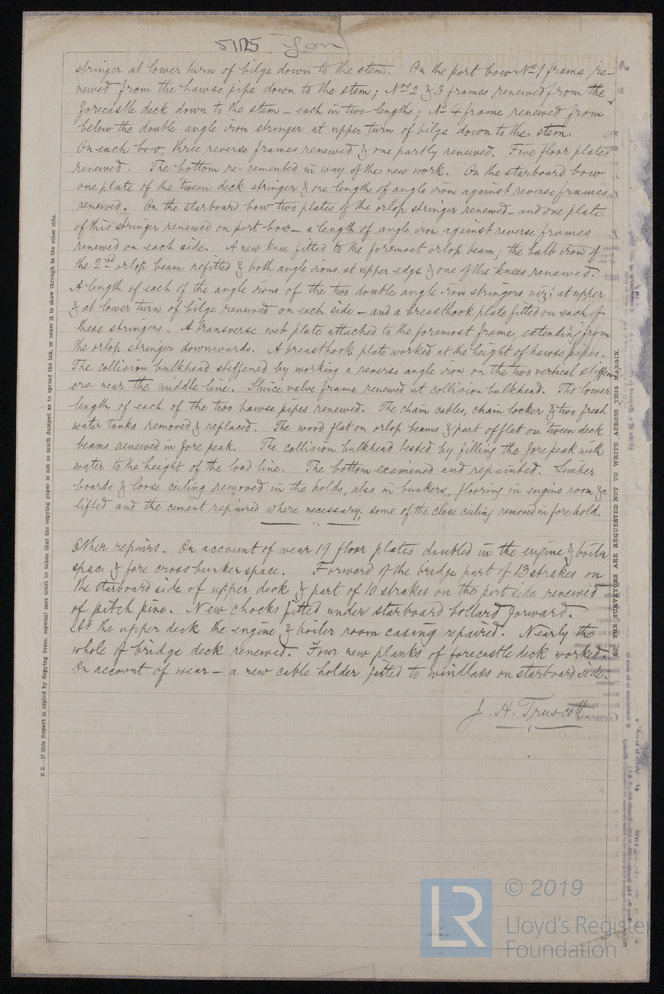 51125 Lon
stringer at lower turn of bilge down to the stem. On the port bow No 1 frame re-
newed from the hawse pipe down to the stem; Nos 2 & 3 frames renewed from the
forecastle deck down to the stem – each in two lengths; No 4 frame renewed from
below the double angle iron stringer at upper turn of bilge down to the stem.
On each bow, three reverse frames renewed & one partly renewed. Five floor plates
renewed. The bottom re-cemented in way of the new work. On the starboard bow
one plate of the tween deck stringer & one length of angle iron against reverse frames
renewed. On the starboard bow two plates of the orlop stringer renewed – and one plate
of this stringer renewed on port bow – a length of angle iron against reverse frames
renewed on each side. A new knee fitted to the foremost orlop beam; the bulb iron of
the 2nd orlop beam refitted & both angle irons at upper edge & one of the knees renewed.
A length of each of the angle irons of the two double angle iron stringers viz: at upper
& at lower turn of bilge renewed on each side – and a breasthook plate fitted on each of
these stringers. A transverse web plate attached to the foremost frame, extending from
the orlop stringer downwards. A breasthook plate worked at the height of hawse pipes.
The collision bulkhead stiffened by working a reverse angle iron on the two vertical stiffen
ers near the middle line. Sluice valve frame renewed at collision bulkhead. The lower
length of each of the two hawse pipes renewed. The chain cables, chain locker & two fresh
water tanks removed & replaced. The wood flat on orlop beams & part of flat on tween deck
beams renewed in fore peak. The collision bulkhead tested by filling the fore peak with
water to the height of the load line. The bottom examined and repainted. Limber
boards & loose ceiling removed in the holds, also in bunkers, flooring in engine room &c
lifted and the cement repaired where necessary, some of the close ceiling removed in fore hold.
Other repairs. On account of wear 19 floor plates doubled in the engine & boiler
space & fore cross bunker space. Forward of the bridge part of 13 strakes on
the starboard side of upper deck & part of 10 strakes on the port side renewed
of pitch pine. New chocks fitted under starboard bollard forward.
At the upper deck the engine & boiler room casing repaired. Nearly the
whole of bridge deck renewed. Four new planks of forecastle deck worked.
On account of wear – a new cable holder fitted to windlass on starboard side.
J. H. Truscott
N.B.—If this Report is copied by Copying Press, especial care must be taken that the copying paper is not so much damped as to spread the ink, or cause it to show through to the other side.
THE SURVEYORS ARE REQUESTED NOT TO WRITE ACROSS THIS MARGIN.
LR
© 2019
Lloyd's Register
Foundation